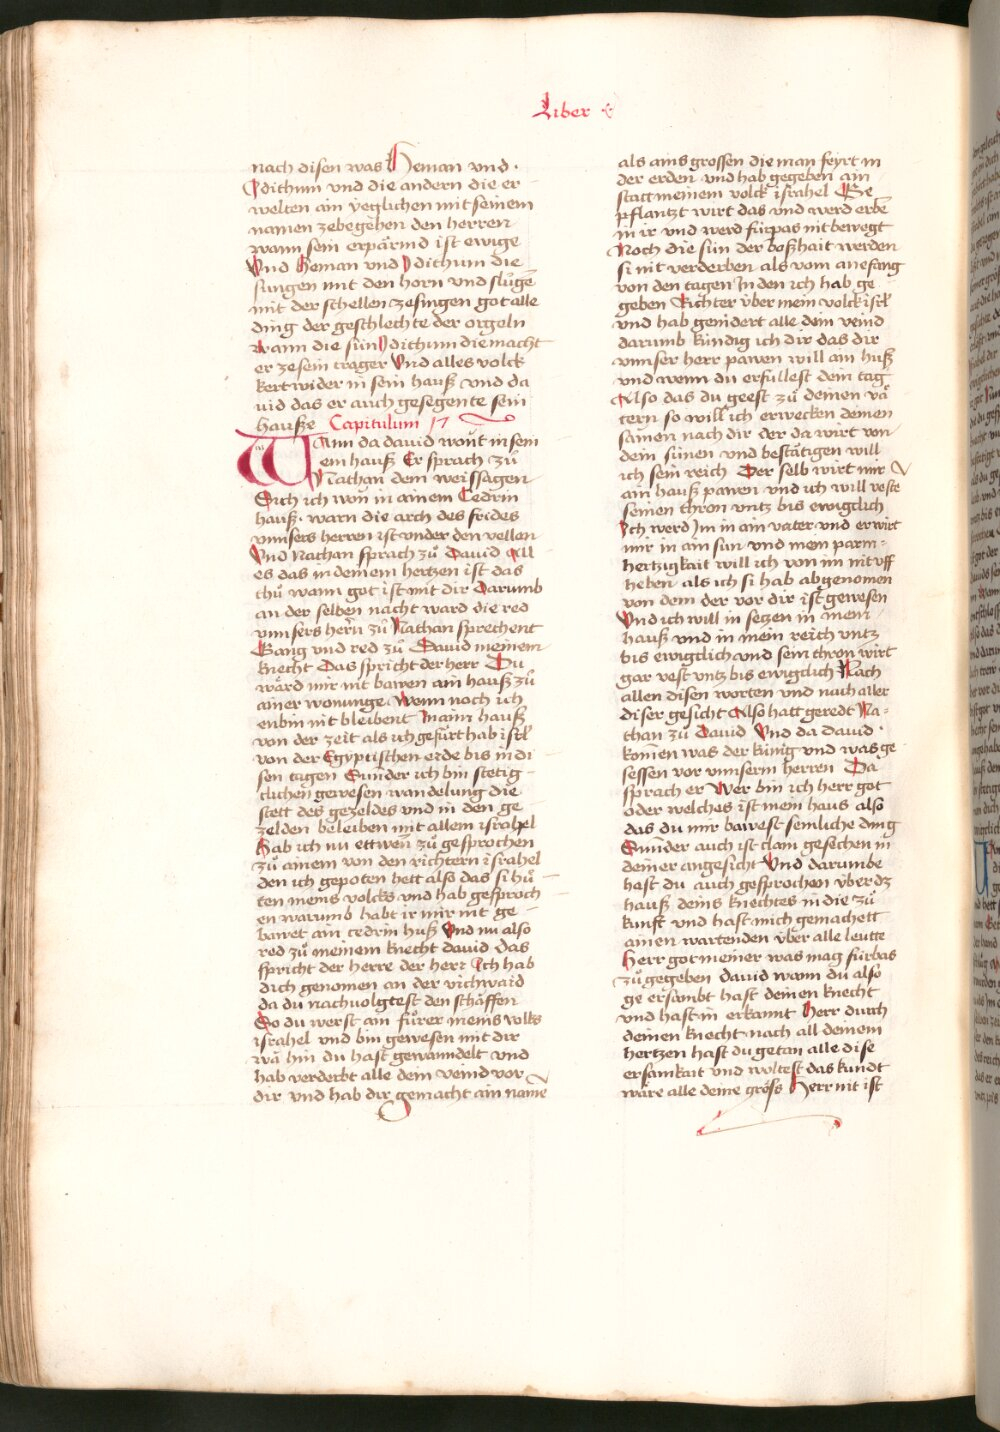 Liber
nach disen was Heman vnd
Idithum vnd die andern die er
welten ain yeglichen mit seinem
namen zebegehen den herren
wann sein erpärmd ist ewige
Vnd Heman vnd Idithum die
sungen mit den horn vnd slugen
mit der schellen zesingen got alle
ding der geschlechte der orgeln
wann die sün Idithum die macht
er ze sein trager Vnd alles volck
kert wider in sein hauß vnd da
uid das er auch gesegente sein
hauße Capitulum 17
Wann da dauid wont in sein
em hauß Er sprach zů
Nathan dem weissagen
Sich ich won in ainem Cedrin
hauß warn die arch des frides
vnnsers herren ist vnder den vellen
Vnd Nathan sprach zů Dauid All
es das in deinem hertzen ist das
thů wann got ist mit dir Darumb
an der selben nacht ward die red
vnnsers herrn zů Nathan sprechent
Gang vnd red zů Dauid meinem
knecht Das spricht der herr Du
ward mir nit bawen ain hauß zů
ainer wonunge Wenn noch ich
enbin nit bleibent Inaim hauß
von der zeit als ich gefürt hab isrl
von der Egyptischen erde bis in di
sen tagen Sunder ich bin stetig
clichen gewesen wandelung die
stett des gezeldes vnd in den ge
zelden beleiben mit allem israhel
Hab ich nu ettwen zů gesprochen
zů ainem von den richtern israhel
den ich gepoten hett also das si hů
ten meins volcks vnd hab gesproch
en warumb habt ir mir nit ge
bawet ain cedrin huß Vnd nu also
red zů meinem knecht dauid das
spricht der herre der herr Ich hab
dich genomen an der vichwaid
da du nachuolgtest den schäffen
So du werst ain fůrer meins volks
israhel vnd bin gewesen mit dir
wa hin du hast gewanndelt vnd
hab verderbt alle dein veind vor
dir vnd hab dir gemacht ain name
als ains grossen die man feyrt in
der erden vnd hab gegeben ain
statt meinem volck israhel Ge
pflantzt wirt das vnd werd erbē
in ir vnd werd fürpas nit bewegt
Noch die sün der boßhait werden
si nit verderben als vom anefang
von den tagen In den ich hab ge
geben Richter über mein volck isrl
vnd hab genidert alle dein veind
darumb kündig ich dir das dir
vnnser herr pawen will ain huß
vnd wenn du erfüllest dein tag
Also das du geest zů deinen vä
tern so will ich erwecken deinen
samen nach dir der da wirt von
dein sünen vnd bestätigen will
ich sein reich Der selb wirt mir
ain hauß pawen vnd ich will veste
seinen thron vntz bis ewigclich
Ich werd Im in ain vater vnd er wirt
mir in ain sun vnd mein parm
hertzigkait will ich von im nit vff
heben als ich si hab abgenomen
von dem der vor dir ist gewesen
Vnd ich will in setzen in mein
hauß vnd in mein reich vntz
bis ewigclich vnd sein thron wirt
gar vest vntz bis ewigclich Nach
allen disen worten vnd nach aller
diser gesicht Also hatt geredt Na
than zů Dauid Vnd da dauid
komen was der künig vnd was ge
sessen vor vnnserm herren Da
sprach er Wer bin ich herr got
oder welches ist mein haus also
das du mir bawest semliche ding
Sunder auch ist clain gesechen in
deiner angesicht Vnd darumbe
hast du auch gesprochen über dz
hauß deins knechtes in die zů
kunft vnd hast mich gemachett
ainen wartenden über alle leutte
Herr got meiner was mag fürbas
zů gegeben dauid wann du also
ge ersambt hast deinen knecht
vnd hast in erkannt Herr durch
deinen knecht nach all deinem
hertzen hast du getan alle dise
ersamkait vnd woltest das kundt
wäre alle deine gröss Herr nit ist